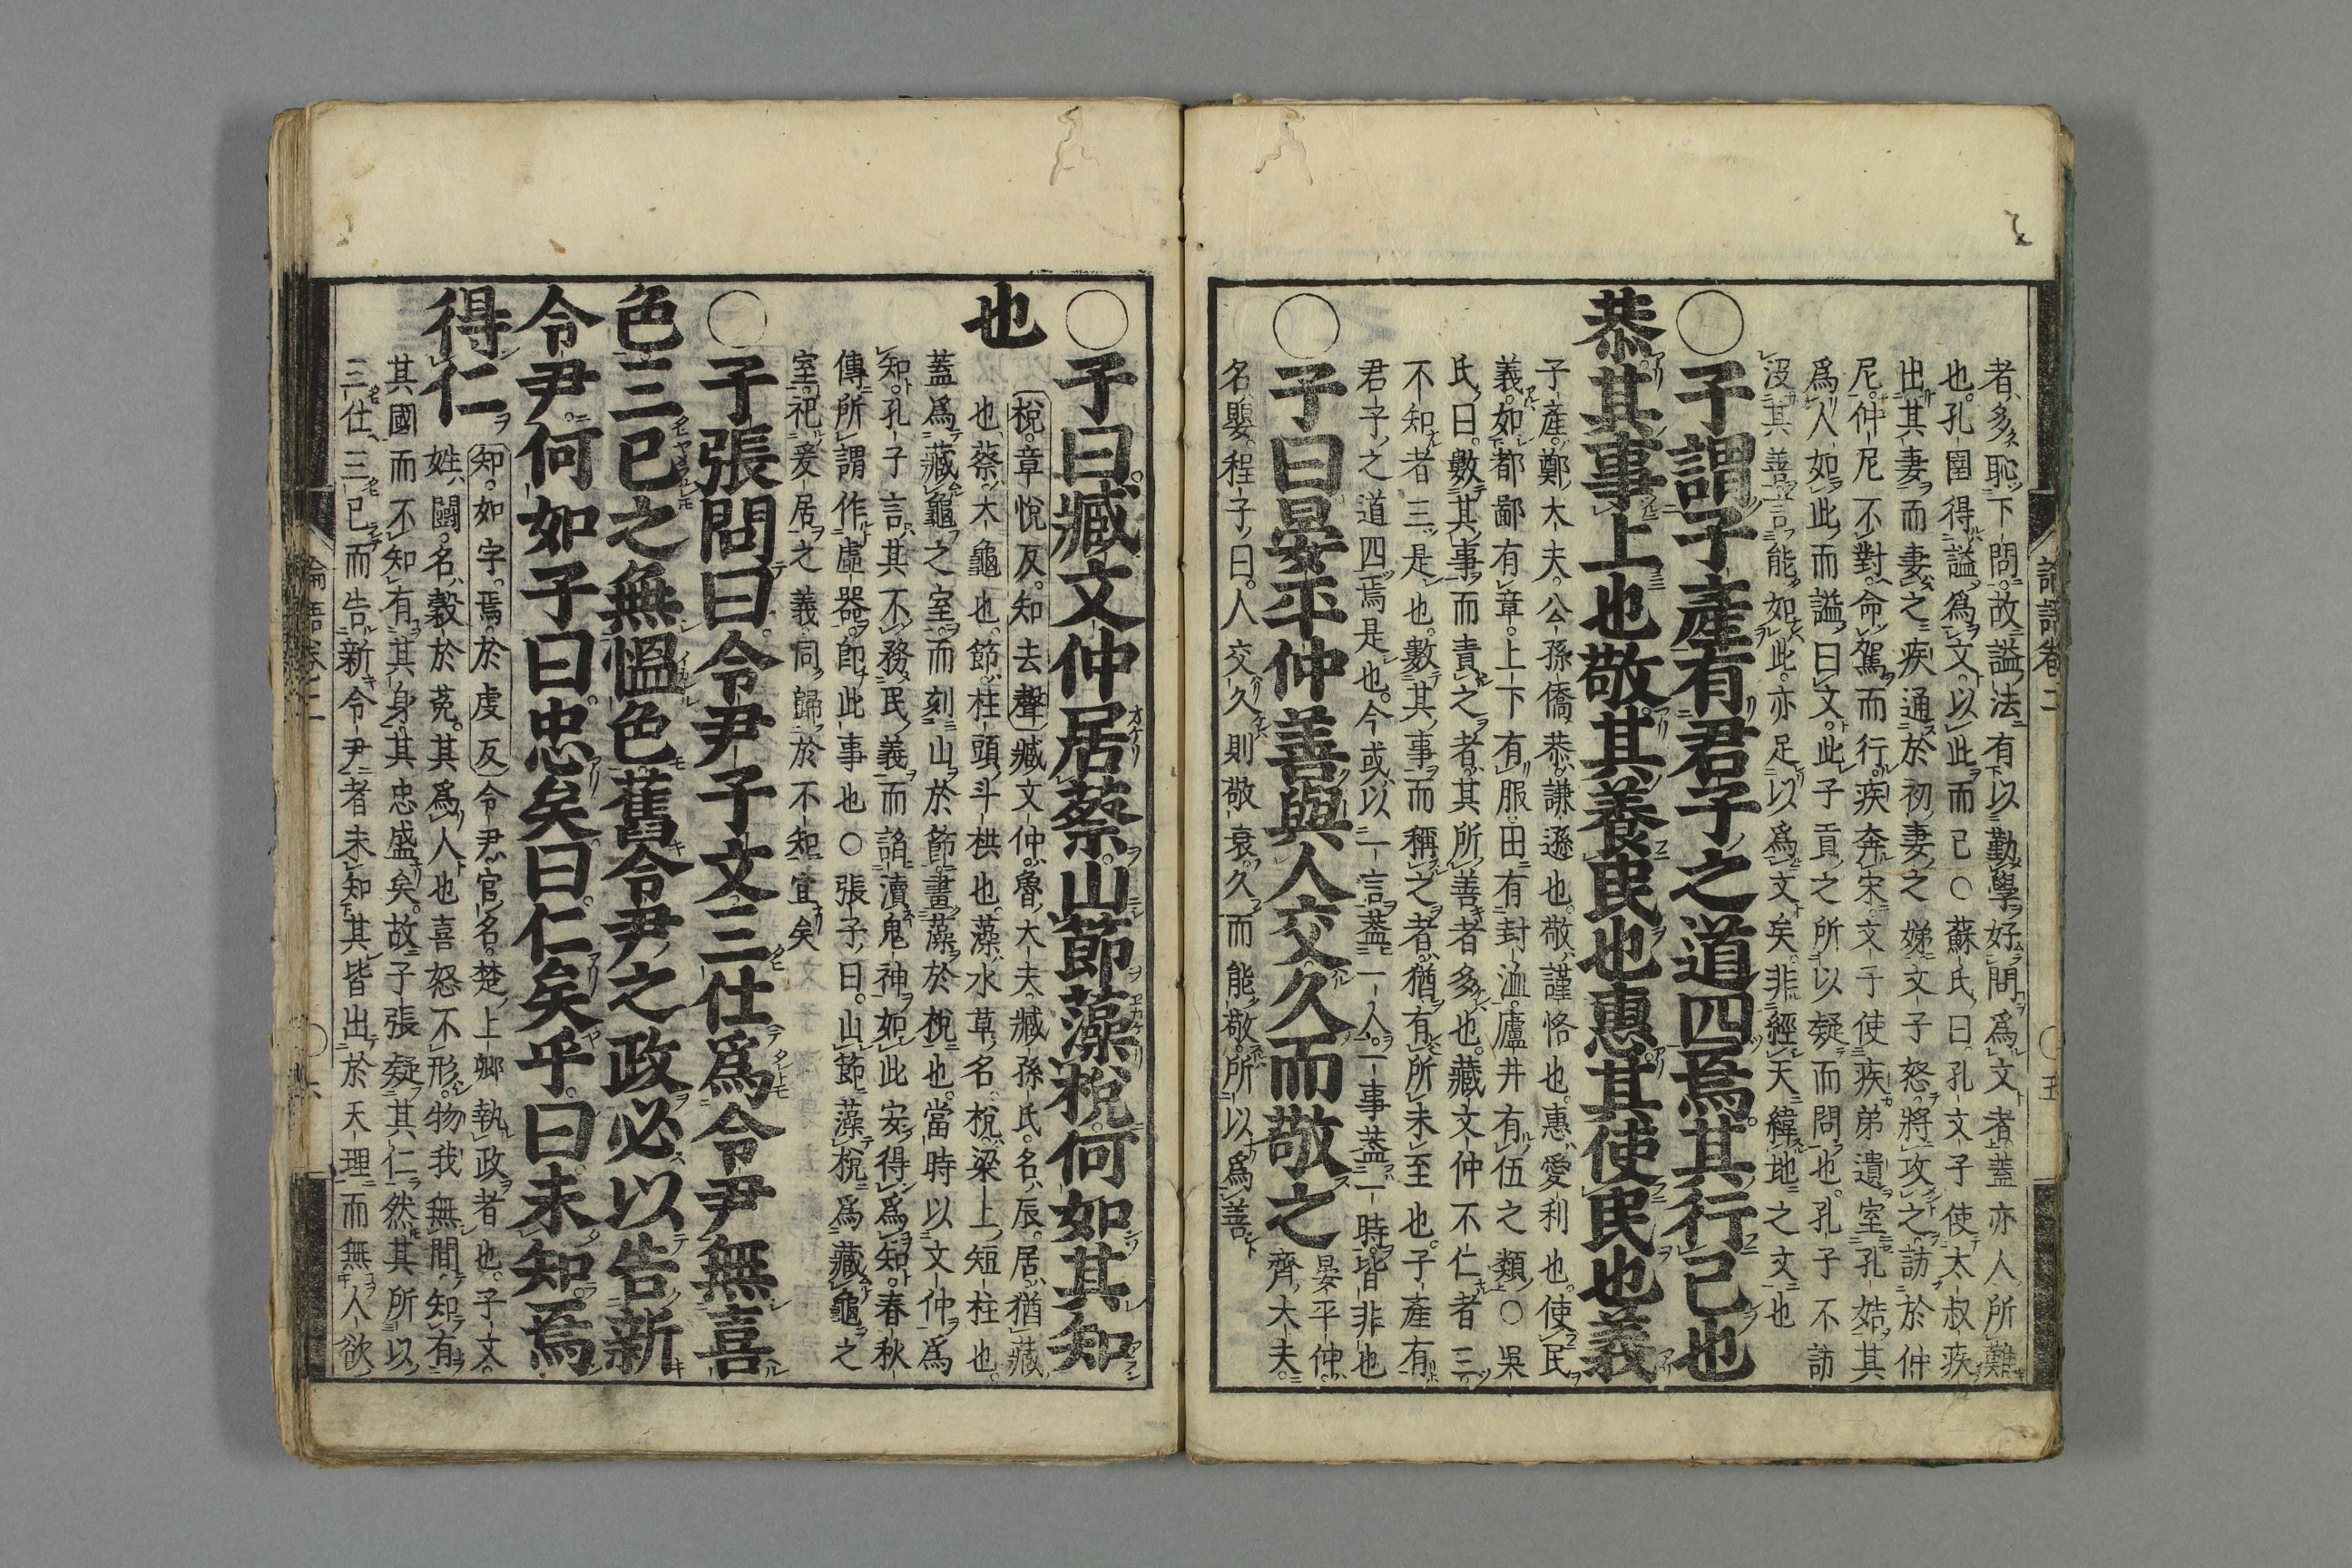 者多恥下問故謚法有以勤學好問爲文者蓋亦人所難
也孔圉得謚爲文以此而已○蘇氏曰孔文子使太叔疾
出其妻而妻之疾通於初妻之娣文子怒將攻之訪於仲
尼仲尼不對命駕而行疾奔宋文子使疾弟遺室孔姞其
爲人如此而謚曰文此子貢之所以疑而問也孔子不
沒其善言能如此亦足以爲文矣非經天緯地之文也
○子謂子產有君子之道四焉其行己也
恭其事上也敬其養民也惠其使民也義
子產鄭大夫公孫僑恭謙遜也敬謹恪也惠愛利也使民
義如都鄙有章上下有服田有封洫廬井有伍之類○吳
氏曰數其事而責之者其所善者多也臧文仲不仁者三
不知者三是也數其事而稱之者猶有所未至也子產有
君子之道四焉是也今或以一言蓋一人一事蓋一時皆非也
○子曰晏平仲善與人交久而敬之 晏平仲齊大夫
名嬰程子曰人交久則敬衰久而能敬所以爲善
論語卷二 ○五
○子曰臧文仲居蔡山節藻梲何如其知
也 梲章悅反知去聲臧文仲魯大夫臧孫氏名辰居猶藏
也蔡大龜也節柱頭斗栱也藻水草名梲梁上短柱也
蓋爲藏龜之室而刻山於節畫藻於梲也當時以文仲爲
知孔子言其不務民義而諂瀆鬼神如此安得爲知春秋
傳所謂作虛器卽此事也○張子曰山節藻梲爲藏龜之
室祀爰居之義同歸於不知宜矣
○子張問曰令尹子文三仕爲令尹無喜
色三已之無慍色舊令尹之政必以告新
令尹何如子曰忠矣曰仁矣乎曰未知焉
得仁 知如字焉於虔反令尹官名楚上卿執政者也子文
姓鬬名穀於菟其爲人也喜怒不形物我無間知有
其國而不知有其身其忠盛矣故子張疑其仁然其所以
三仕三已而告新令尹者未知其皆出於天理而無人欲
論語卷二 ○六